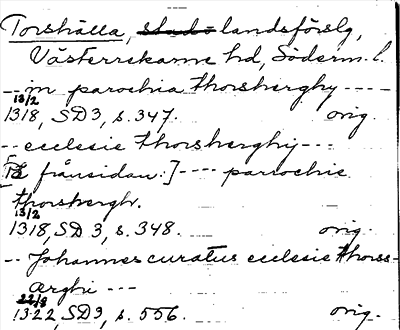 Torshälla, stads- landsförslg,
Västerrekarne hd, Söderm. l.
-- in parochia thorsherghy ----
13/2
1318, SD 3, s. 347. orig.
-- ecclesie thorsherghij ---
frånsidan:] ---- parrochie
thorshergh.
13/2
1318, SD 3, s. 348. orig.
-- Johannes curatus ecclesie thorss-
ærghi ---
22/3
1322, SD3, s. 556. orig.